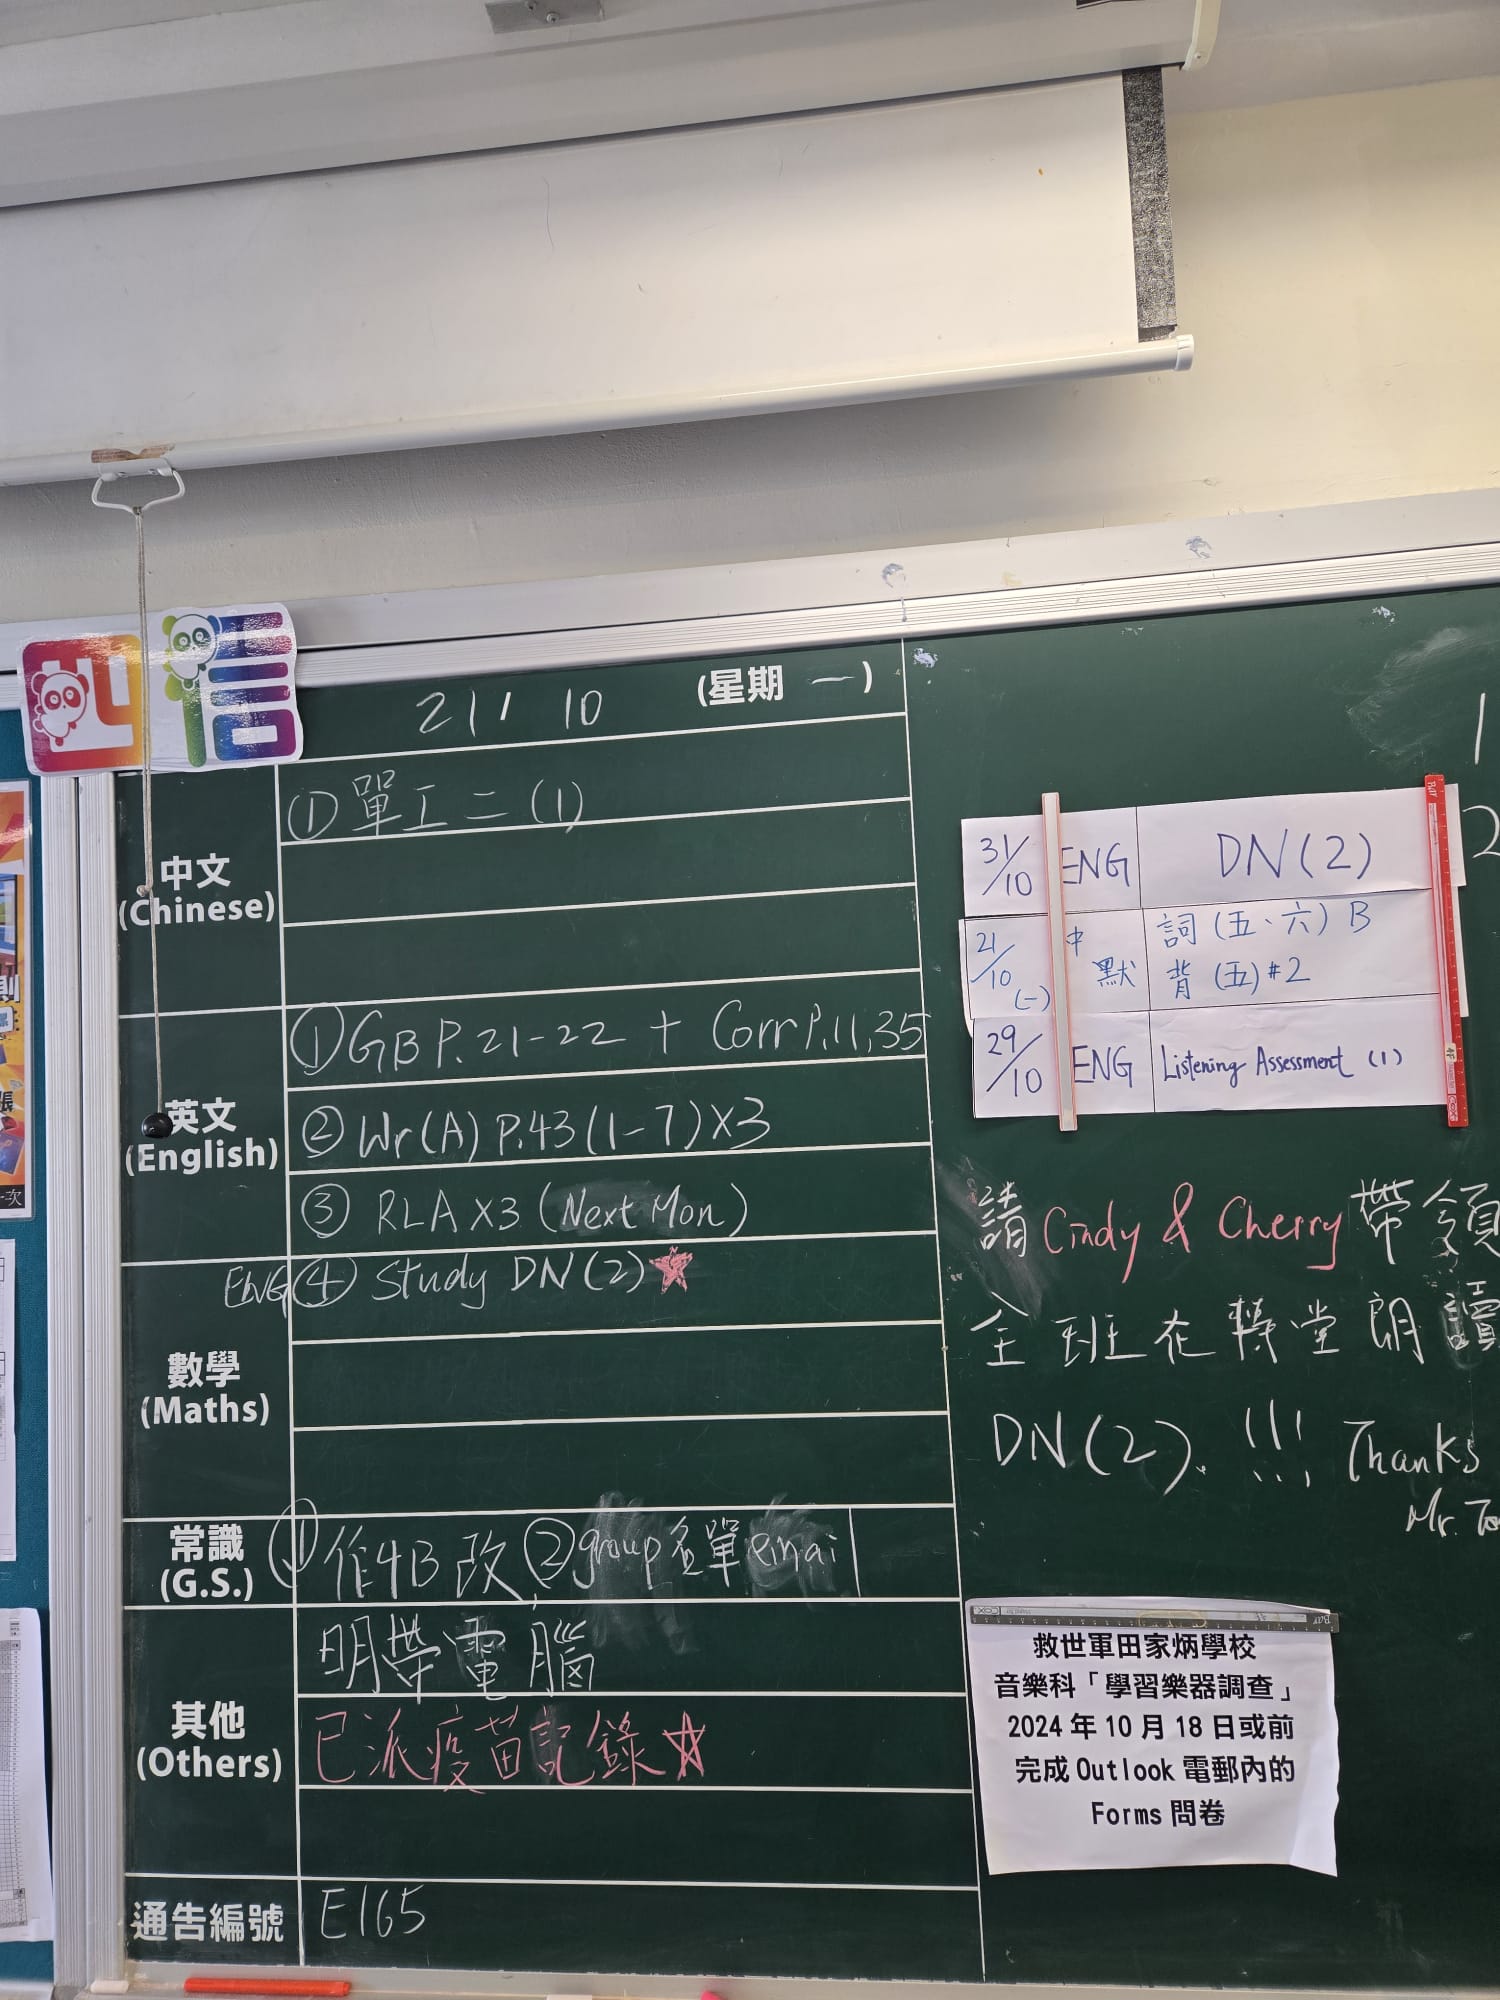 21/10 (星期一)
中文
(Chinese)
① 單工二(1)
英文
(English)
① GB P.21-22 + Corr P.11,35
② Wr(A) P.43(1-7)X3
③ RLA X3 (Next Mon)
ENG ④ Study DN(2)
數學
(Maths)
常識
(G.S.)
① 作4B改 ② group名單
其他
(Others)
明帶電腦
已派疫苗記錄
通告編號
E165
1
2
31/10 ENG DN(2)
21/10 (一) 中默 詞(五、六)B
背(五)#2
29/10 ENG Listening Assessment (1)
請 Cindy & Cherry 帶領
全班在轉堂朗讀
DN(2). !!! Thanks
Mr.
救世軍田家炳學校
音樂科「學習樂器調查」
2024年10月18日或前
完成Outlook電郵內的
Forms問卷